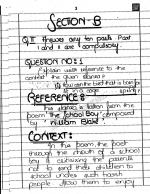 SECTION-B
Q.II Answer any ten parts. Part
I and II are compulsory
QUESTION NO: 1
Explain with reference to the
context the given stanza?
How can the bird that is born for
joy
sit in a cage
REFERENCE:
This stanza is taken from the
poem "The School Boy" composed
by "William Blake".
CONTEXT:
In the poem, the boy
through the mouth of a school
boy is advising the parents
not to send their children to
school under such harsh
people. Allow them to enjoy